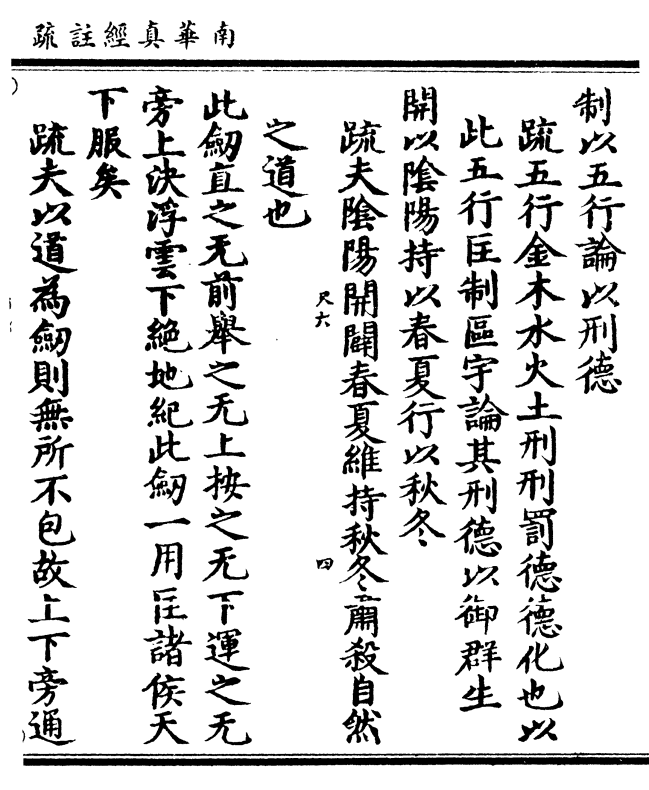 南華真經註疏
制以五行論以刑德
疏五行金木水火土刑刑罰德德化也以
此五行匡制區宇論其刑德以御群生
開以陰陽持以春夏行以秋冬
疏夫陰陽開闢春夏維持秋冬肅殺自然
之道也
尺六
四
此劒直之无前舉之无上按之无下運之无
旁上決浮雲下絶地紀此劒一用匡諸侯天
下服矣
疏夫以道為劒則無所不包故上下旁通